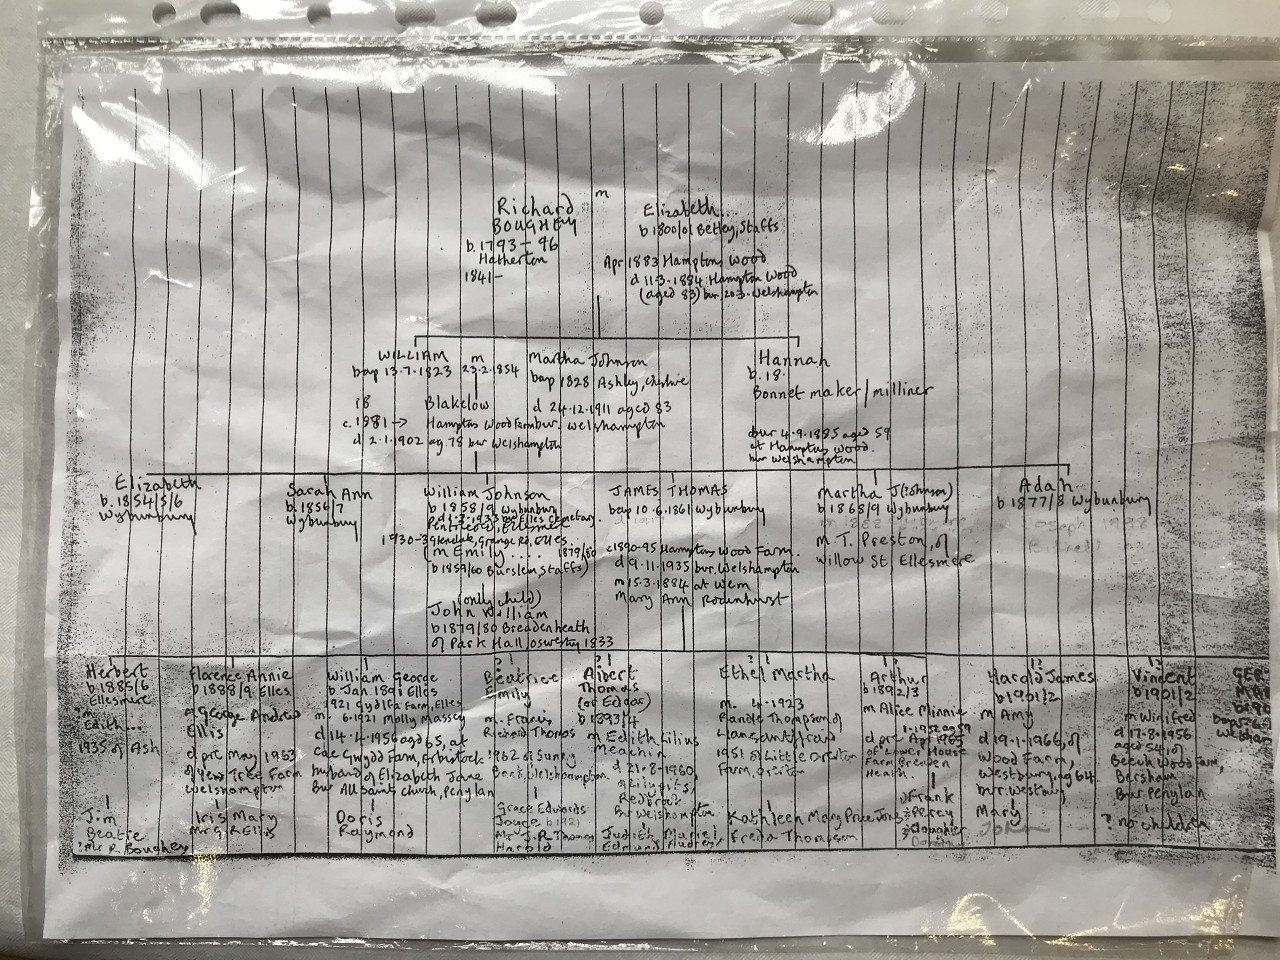 Richard m Elizabeth
BOUGHEY b 1800/01 Betley, Staffs
b. 1793 - 96
Hatherton Apr 1883 Hampton Wood
1841- d 11-3-1884 Hampton Wood
(aged 83) bur 20.3. Welshampton
WILLIAM m Martha Johnson Hannah
bap 13.7.1823 23.2.1854 bap 1828 Ashley, Cheshire b. 18.
Bonnet maker/milliner
18 Blakelow d 24.12.1911 aged 83
c. 1881 → Hampton Wood Farm bur. Welshampton
d 2.1.1902 ag. 78 bur Welshampton
bur 4.9.1885 aged 59
at Hampton Wood.
bur Welshampton
Elizabeth
b. 1854/5/6
Wybunbury
Sarah Ann
b. 1856/7
Wybunbury
William Johnson
b 1858/9 Wybunbury
bur Elles Cemetary.
Ellesmere
1930-3 Glendale, Grange Rd, Elles.
(m Emily .... 1879/80
b 1859/60 Burslem, Staffs)
(only child)
John William
b 1879/80 Breadenheath
of Park Hall, Oswestry 1833
JAMES THOMAS
bap 10.6.1861 Wybunbury
c1890-95 Hampton Wood Farm.
d 9.11.1935 bur. Welshampton
m 15.3.1884 at Wem
Mary Ann Rodenhurst
Martha J (Johnson)
b 1868/9 Wybunbury
m. T. Preston, of
Willow St Ellesmere
Adah
b 1877/8 Wybunbury
Herbert
b. 1885/6
Ellesmere
m
Edith...
1935 of Ash
Jim
Beatie
?Mr R. Boughey
Florence Annie
b 1888/9 Elles.
m George Andrew
Ellis
d pre May 1963
of Yew Tree Farm
Welshampton
Iris Mary
Mrs G R Ellis
William George
b Jan 1891 Elles
1921 Gydlfa Farm, Elles
m. 6.1921 Molly Massey
d 14.4.1956 aged 65, at
Cae Gwydd Farm, Erbistock
husband of Elizabeth Jane
Bur All Saints church, Penylan
Doris
Raymond
? Beatrice
Emily
m. Francis
Richard Thomas
1962 of Sunny
Bank, Welshampton
Grace Edwards
Joyce b 1921
Mr J. R. Thomas
Harold
?
Albert
Thomas
(or Edgar)
b 1893/4
m Edith Lilius
Meachin
d 21.8.1960,
Redbrook
Bur Welshampton
Judith Muriel
Edmund Audrey
?
Ethel Martha
m. 4.1923
Randle Thompson of
Llansantffraid
1951 of Little Overton
Farm, Overton
Kathleen Mary Price Jones
Freda Thomsson
?
Arthur
b 1892/3
m Alice Minnie
d pre Apr 1965
of Lower House
Farm Breaden
Heath.
?Frank
?Percy
?daughter
?
Harold James
b 1901/2
m Amy
d 19.1.1966, of
Wood Farm,
Westbury, ag 64
bur. Westbury
Mary
John
?
Vincent
b 1901/2
m Winifred
d 17.8.1956
aged 54, of
Beech Wood Farm,
Bersham
Bur Penylan
? no children